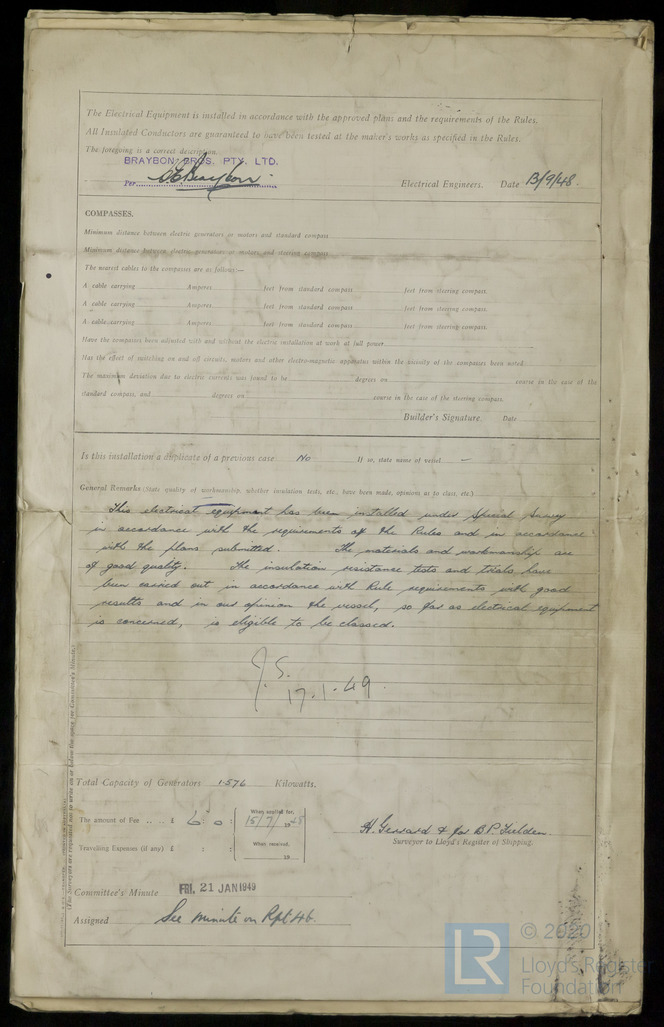 The Electrical Equipment is installed in accordance with the approved plans and the requirements of the Rules.
All Insulated Conductors are guaranteed to have been tested at the maker's works as specified in the Rules.
The foregoing is a correct description.
BRAYBON BROS. PTY. LTD.
Per Braybon Electrical Engineers. Date 13/9/48.
COMPASSES.
Minimum distance between electric generators or motors and standard compass
Minimum distance between electric generators or motors and steering compass
The nearest cables to the compasses are as follows:—
A cable carrying Amperes feet from standard compass feet from steering compass.
A cable carrying Amperes feet from standard compass feet from steering compass.
A cable carrying Amperes feet from standard compass feet from steering compass.
Have the compasses been adjusted with and without the electric installation at work at full power
Has the effect of switching on and off circuits, motors and other electro-magnetic apparatus within the vicinity of the compasses been noted
The maximum deviation due to electric currents was found to be degrees on course in the case of the
standard compass, and degrees on course in the case of the steering compass.
Builder's Signature. Date
Is this installation a duplicate of a previous case No If so, state name of vessel —
General Remarks (State quality of workmanship, whether insulation tests, etc., have been made, opinions as to class, etc.)
This electrical equipment has been installed under Special Survey
in accordance with the requirements of the Rules and in accordance
with the plans submitted. The materials and workmanship are
of good quality. The insulation resistance tests and trials have
been carried out in accordance with Rule requirements with good
results and in our opinion the vessel, so far as electrical equipment
is concerned, is eligible to be classed.
J.S.
17.1.49.
Total Capacity of Generators 1.576 Kilowatts.
The amount of Fee .. .. £ 6 : 0 : When applied for, 15/7/1948
Travelling Expenses (if any) £ : : When received, 19
H. Gerrard & for B.P. Fielden.
Surveyor to Lloyd's Register of Shipping.
Committee's Minute FRI. 21 JAN 1949
Assigned See minute on Rpt 4b.
(The Surveyors are requested not to write on or below the space for Committee's Minute.)
LR
© 2020
Lloyd's Register
Foundation